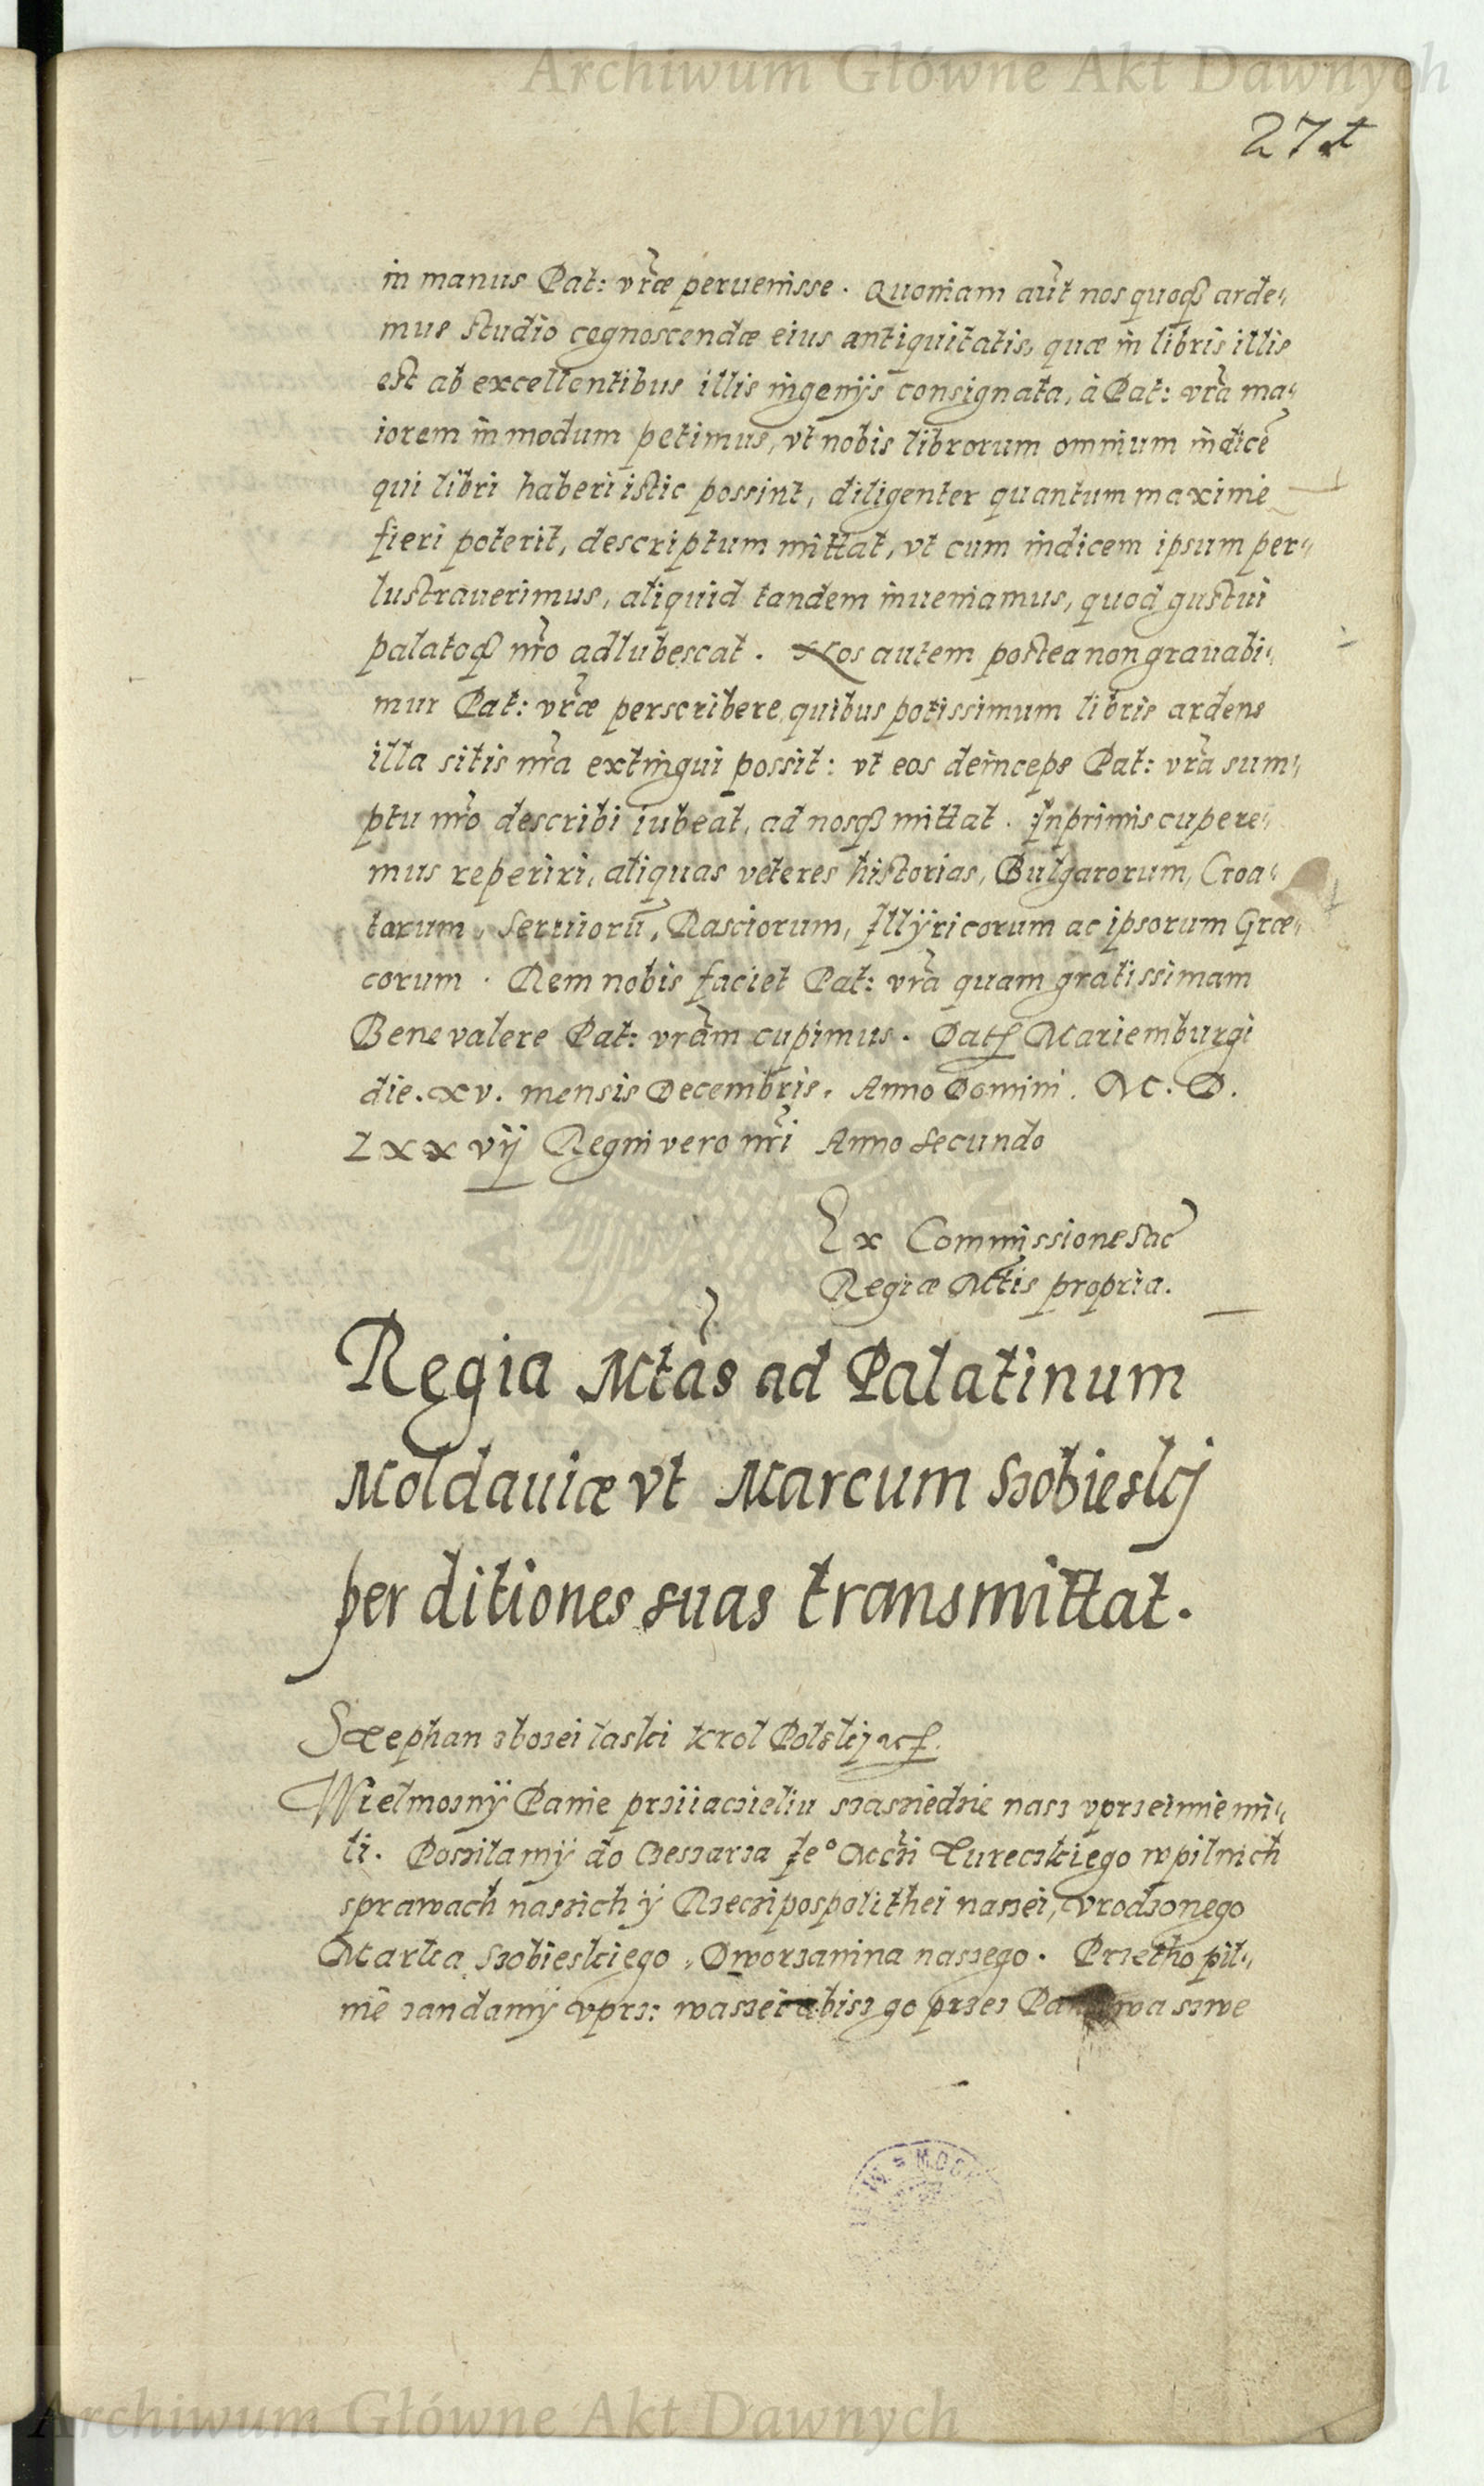 Archiwum Główne Akt Dawnych
271
in manus Pat: vr̃æ peruenisse. Quoniam aũt nos quoqꝫ arde⸗
mus studio cognoscendæ eius antiquitatis, quæ in libris illis
est ab excellentibus illis ingenijs consignata, à Pat: vr̃a ma⸗
iorem in modum petimus, vt nobis librorum omnium indicẽ
qui libri haberi istic possint, diligenter quantum maxime
fieri poterit, descriptum mittat, vt cum indicem ipsum per⸗
lustrauerimus, aliquid tandem inueniamus, quod gustui
palatoqꝫ nr̃o adlubescat. Nos autem postea non grauabi⸗
mur Pat: vr̃æ perscribere, quibus potissimum libris ardens
illa sitis nr̃a extingui possit: vt eos deinceps Pat: vr̃a sum⸗
ptu nr̃o describi iubeat, ad nosqꝫ mittat. Inprimis cupere⸗
mus reperiri, aliquas veteres historias, Bulgarorum, Croa⸗
tarum, Seruiorũ, Rasciorum, Illÿricorum ac ipsorum Græ⸗
corum. Rem nobis faciet Pat: vr̃a quam gratissimam
Bene valere Pat: vrãm cupimus. Datꝭ Mariemburgi
die. xv. mensis Decembris. Anno Domini. M. D.
Lxxvij Regni vero nr̃i Anno Secundo
Ex Commissione Sac̃
Regiæ Mt̃is propria.
Regia Mtãs ad Palatinum
Moldauiæ vt Marcum Szobieskj
per ditiones suas transmittat.
Stephan zbozei laski krol Polskj ꝛcꝭ.
Wielmoznÿ Panie prziiacieliu szasziedzie nasz vprzeimie mi⸗
li. Poszilamÿ do Cieszarza Je° Mc̃zi Tureczkiego w pilnich
sprawach naszich ÿ Rzeczipospolithei naszei, vrodzonego
Marka Szobieskiego, Dworzanina naszego. Przetho pil⸗
nie zandamÿ vprz: waszei abisz go przez szwe
Archiwum Główne Akt Dawnych